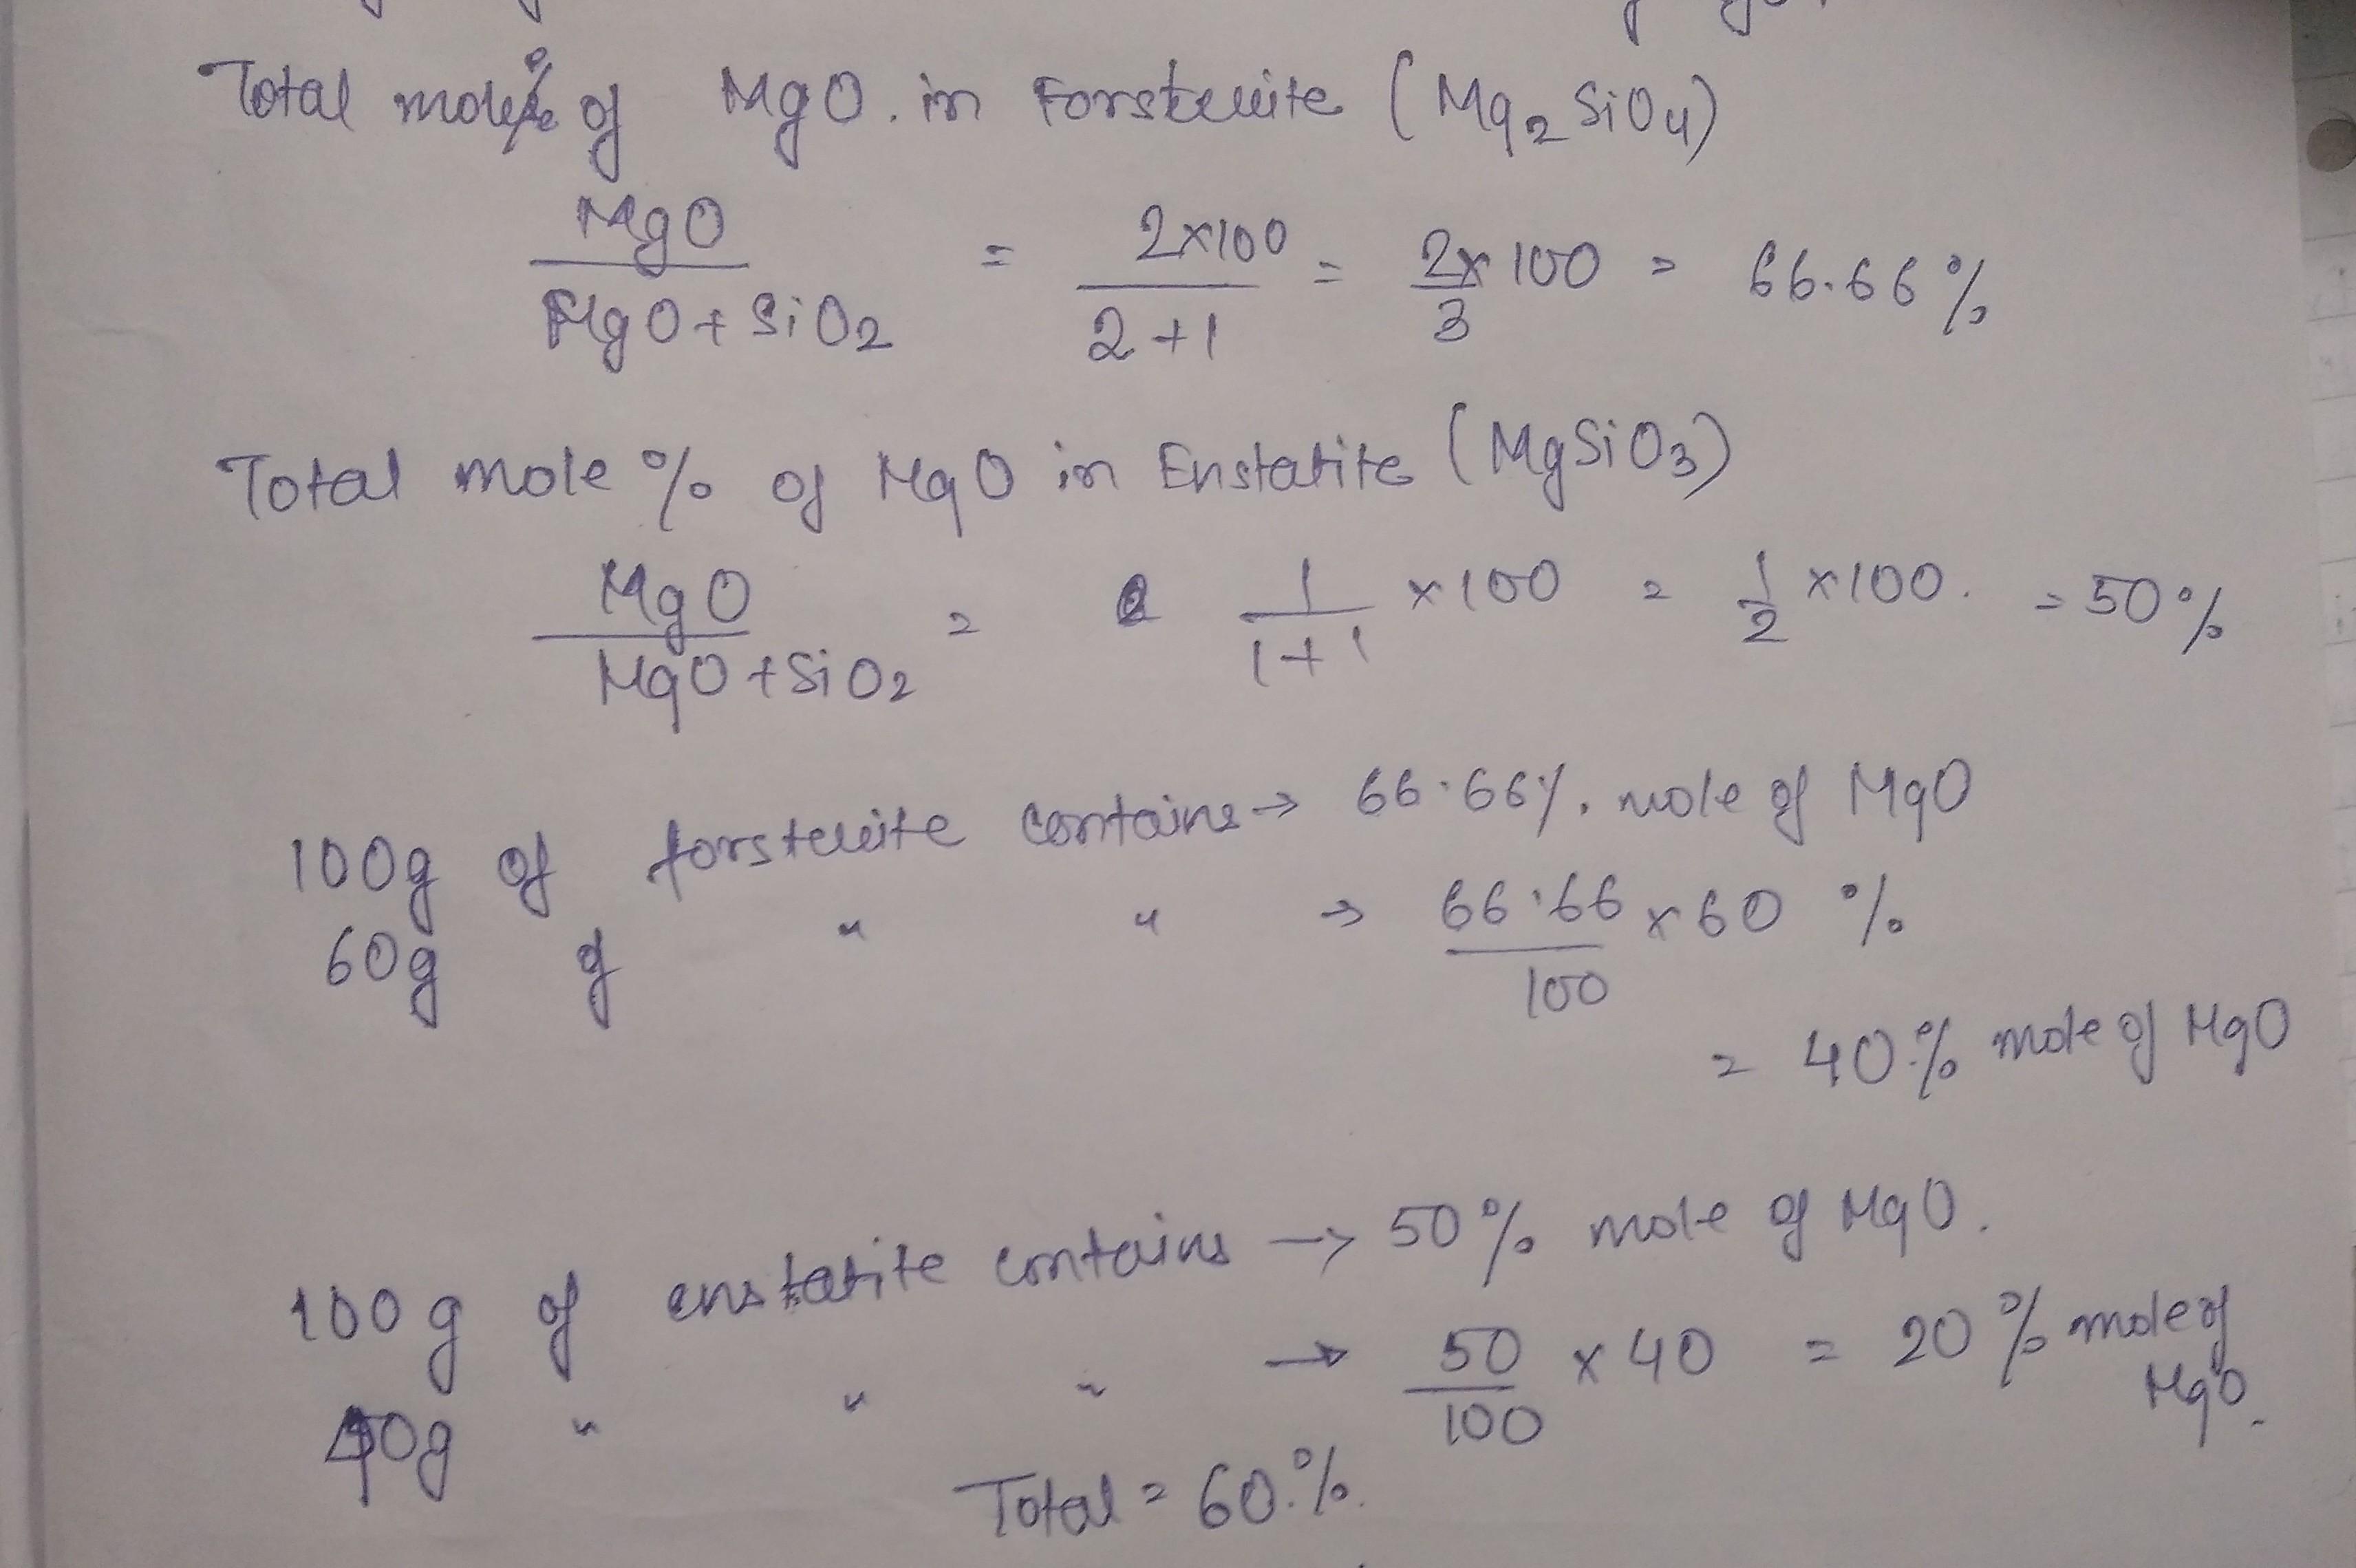 Total mole % of MgO. in Forsterite (Mg2SiO4)
MgO / MgO + SiO2 = 2x100 / 2+1 = 2/3 x 100 = 66.66%
Total mole % of MgO in Enstatite (MgSiO3)
MgO / MgO + SiO2 = 1 / 1+1 x 100 = 1/2 x 100. = 50%
100g of forsterite contains → 66.66%. mole of MgO
60g of " " → 66.66 / 100 x 60 %
= 40% mole of MgO
100g of enstatite contains → 50% mole of MgO.
40g " " " → 50 / 100 x 40 = 20% mole of MgO.
Total = 60%.